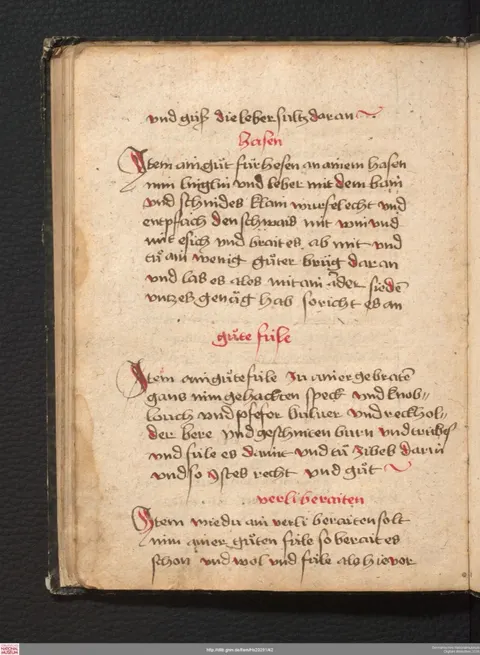 vnd guß die leber sultz dar an
Hasen
Item ain gůt fürhesen an ainem hasen
nim lunglin vnd leber mit dem bain
vnd schnides klain wurfelecht vnd
entpfach den schwais mit win vnd
mit esich vnd brait es ab mit vnd
tů ain wenig gůter brüg dar an
vnd las es alos mit ain ander sieden
vntz es genůg hab so richt es an
gůte füle
Item ain gůte füle zu ainer gebraten
gans nim gehackten speck vnd knob„
louch vnd pfefer buluer vnd reckhol„
der bere vnd geschniten birn vnd trubeß
vnd füle es damit vnd tů zibeb darin
vnd so istes recht vnd gůt
verli beraiten
Item wiedu ain verli beraiten solt
nim ainer gůten füle so berait es
schon vnd wol vnd füle als hie vor
http://dlib.gnm.de/item/Hs20291/42